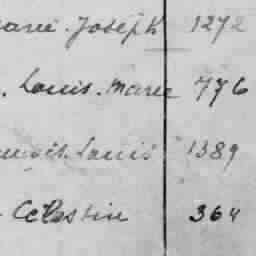 Marie Joseph 1272
. Louis. Marie 776
Louis 1389
- Célestin 364